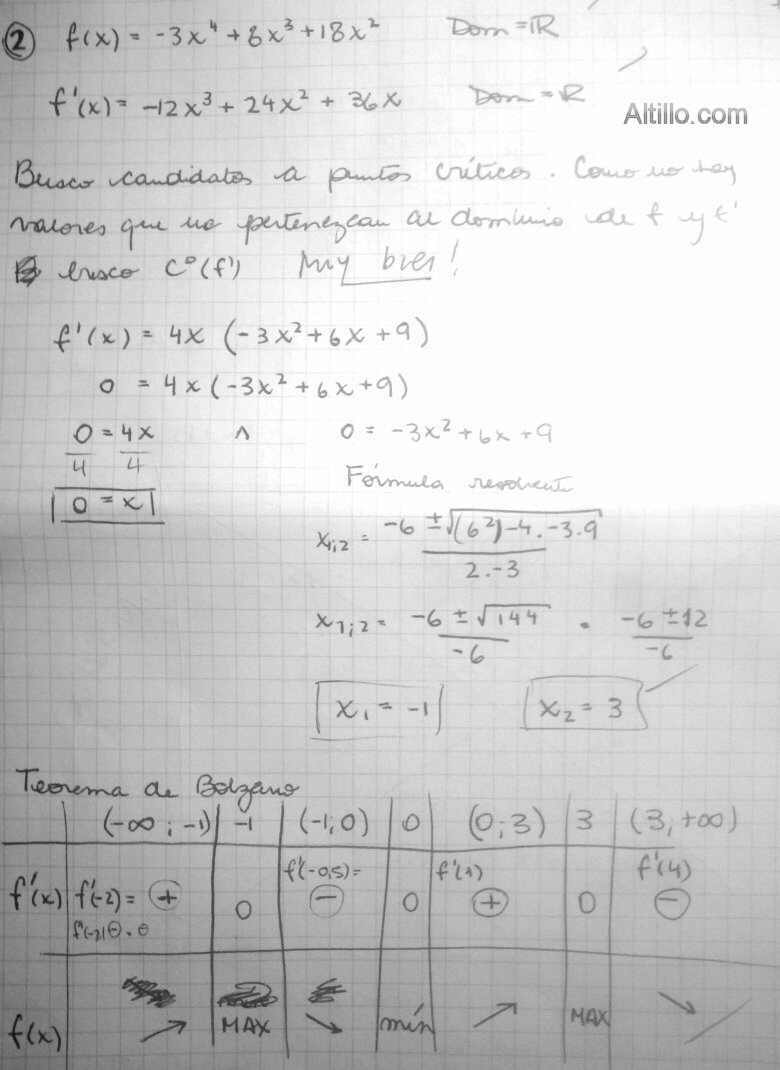 2 f(x) = -3x⁴ + 8x³ + 18x² Dom = ℝ
f'(x) = -12x³ + 24x² + 36x Dom = ℝ
Altillo.com
Busco candidatos a puntos críticos. Como no hay
valores que no pertenezcan al dominio de f y f'
busco C°(f') Muy bien!
f'(x) = 4x (-3x² + 6x + 9)
0 = 4x (-3x² + 6x + 9)
0 = 4x ∧ 0 = -3x² + 6x + 9
4 4
0 = x
Fórmula resolvente
x₁;₂ = -6 ± √(6²) - 4 . -3 . 9
2 . -3
x₁;₂ = -6 ± √144 = -6 ± 12
-6 -6
x₁ = -1 x₂ = 3
Teorema de Bolzano
(-∞ ; -1) -1 (-1; 0) 0 (0; 3) 3 (3, +∞)
f'(-0,5) = f'(1) f'(4)
f'(x) f'(-2) = + 0 - 0 + 0 -
f(x) ↗ MAX ↘ mín ↗ MAX ↘